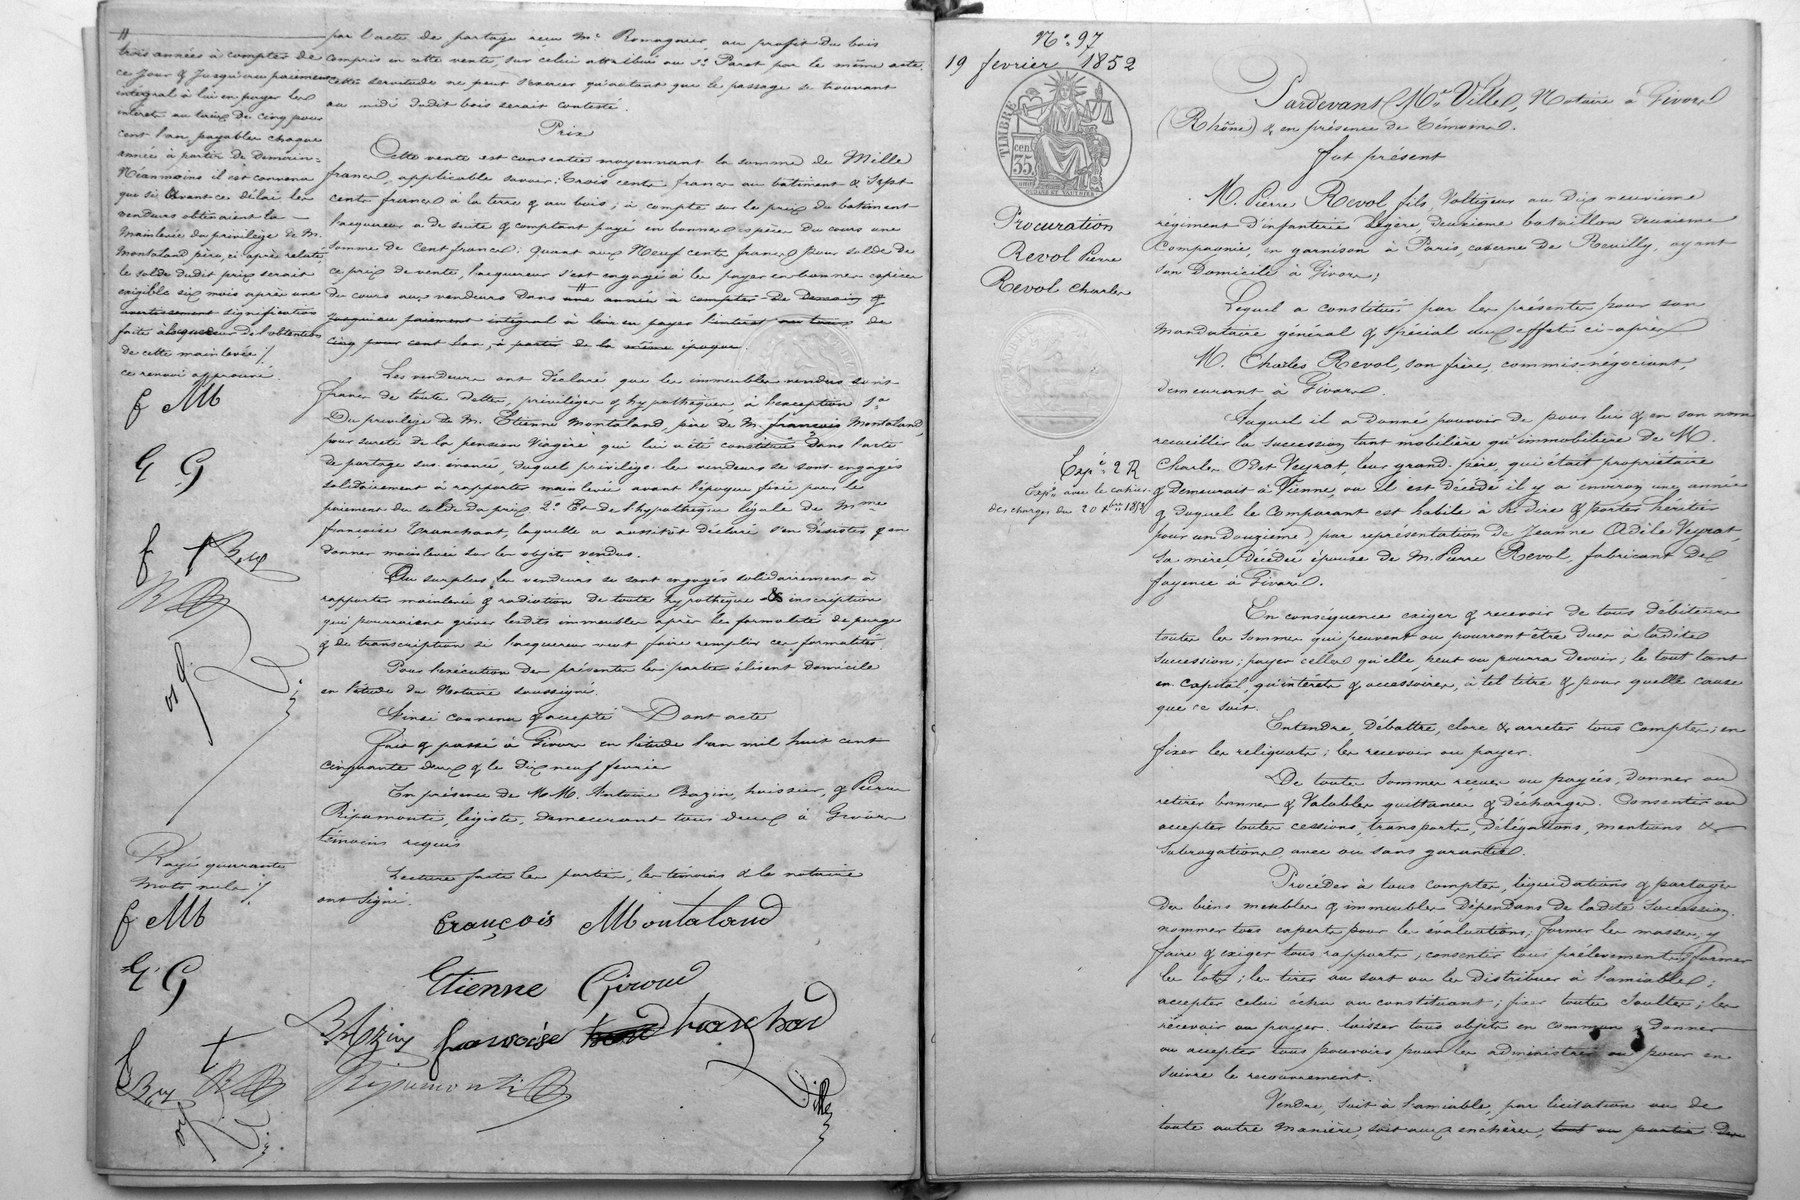 #
trois années à compter de
ce jour & jusqu'au paiement
intégral à lui en payer les
intérêts au taux de cinq pour
cent l'an payables chaque
année à partir de demain.
Néanmoins il est convenu
que si avant ce délai les
vendeurs obtenaient la
mainlevée du privilège de M.
Montaland père, ci après relaté
le solde dudit prix serait
exigible six mois après une
avertissement signification
faite à l'acquéreur de l'obtention
de cette mainlevée /.
ce renvoi approuvé.
f M
E G
Rayé quarante
mots nuls /.
f M
E G
par l'acte de partage reçu Me Romagnier, au profit du bois
compris en cette vente, sur celui attribué au Sr Parat par le même acte.
cette servitude ne peut s'exercer qu'autant que le passage se trouvant
au midi dudit bois serait contesté.
Prix
Cette vente est consentie moyennant la somme de Mille
francs, applicable savoir: trois cents francs au bâtiment & Sept
cents francs à la terre & au bois; à compte sur le prix du bâtiment
l'acquéreur a de suite & comptant payé en bonnes espèces du cours une
somme de cent francs: quant aux Neuf cents francs pour solde de
ce prix de vente, l'acquéreur s'est engagé à les payer en bonnes espèces
du cours aux vendeurs dans # une année à compter de demain &
jusqu'au paiement intégral à leur en payer l'intérêt au taux de
cinq pour cent l'an, à partir de la même époque.
Les vendeurs ont déclaré que les immeubles vendus sont
francs de toutes dettes, privilèges & hypothèques, à l'exception 1º
du privilège de M. Etienne Montaland, père de M. françois Montaland,
pour sureté de la pension viagère qui lui a été constituée dans l'acte
de partage sus-énoncé, duquel privilège les vendeurs se sont engagés
solidairement à rapporter mainlevée avant l'époque fixée pour le
paiement du solde du prix 2º Et de l'hypothèque légale de Mme
françoise Tranchant, laquelle a aussitôt déclaré s'en désister & en
donner mainlevée sur les objets vendus.
Au surplus les vendeurs se sont engagés solidairement à
rapporter mainlevée & radiation de toutes hypothèques & inscription
qui pourraient grever lesdits immeubles après les formalités de purge
& de transcription si l'acquéreur veut faire remplir ces formalités.
Pour l'exécution des présentes les parties élisent domicile
en l'étude du Notaire soussigné.
Ainsi convenu & accepté Dont acte
Fait & passé à Givors en l'étude l'an mil huit cent
cinquante deux & le dix neuf février
En présence de MM. Antoine Bazin, huissier, & Pierre
Ripamonti, légiste, demeurant tous deux à Givors
témoins requis
Lecture faite les parties, les témoins & le notaire
ont signé.
françois Montaland
Etienne Giroud
Bazin françoise tranchand
Ripamonti
Ville
N.º 97
19 février 1852
TIMBRE
35 cen
Procuration
Revol Pierre
Revol Charles
Expé 2 R
Expé avec le cahier
des charges du 20 xbre 1852
Pardevant Me Ville, Notaire à Givors
(Rhône) & en présence de témoins.
fut présent
M. Pierre Revol fils, Voltigeur au Dix neuvième
régiment d'infanterie légère, deuxième bataillon deuxième
Compagnie, en garnison à Paris, caserne de Reuilly, ayant
son Domicile à Givors;
Lequel a constitué par les présentes pour son
mandataire général & spécial aux effets ci-après
M. Charles Revol, son frère, commis-négociant,
demeurant à Givors.
Auquel il a donné pouvoir de pour lui & en son nom
recueillir la succession tant mobilière qu'immobilière de M.
Charles Odet Veyrat, leur grand-père, qui était propriétaire
& demeurait à Vienne, où il est décédé il y a environ une année
& duquel le comparant est habile à se dire & porter héritier
pour un douzième, par représentation de Jeanne Odèle Veyrat,
sa mère, décédée épouse de M. Pierre Revol, fabricant de
fayence à Givors.
En conséquence exiger & recevoir de tous débiteurs
toutes les sommes qui peuvent ou pourront être dues à ladite
succession; payer celles qu'elle peut ou pourra devoir; le tout tant
en capital, qu'intérêts & accessoires, à tel titre & pour quelle cause
que ce soit.
Entendre, Débattre, clore & arrêter tous comptes; en
fixer les reliquats; les recevoir ou payer.
De toutes sommes reçues ou payées, donner ou
retirer bonnes & valables quittances & décharges. Consentir ou
accepter toutes cessions, transports, délégations, mentions &
subrogations, avec ou sans garanties.
Procéder à tous comptes, liquidations & partages
des biens meubles & immeubles dépendans de ladite succession.
nommer tous experts pour les évaluations; former les masses; y
faire & exiger tous rapports; consentir tous prélèvements; former
les lots; les tirer au sort ou les distribuer à l'amiable;
accepter celui échu au constituant; fixer toutes soultes; les
recevoir ou payer. laisser tous objets en commun & donner
ou accepter tous pouvoirs pour les administrer ou pour en
suivre le recouvrement.
Vendre, soit à l'amiable, par licitation ou de
toute autre manière, soit aux enchères, tout ou partie des